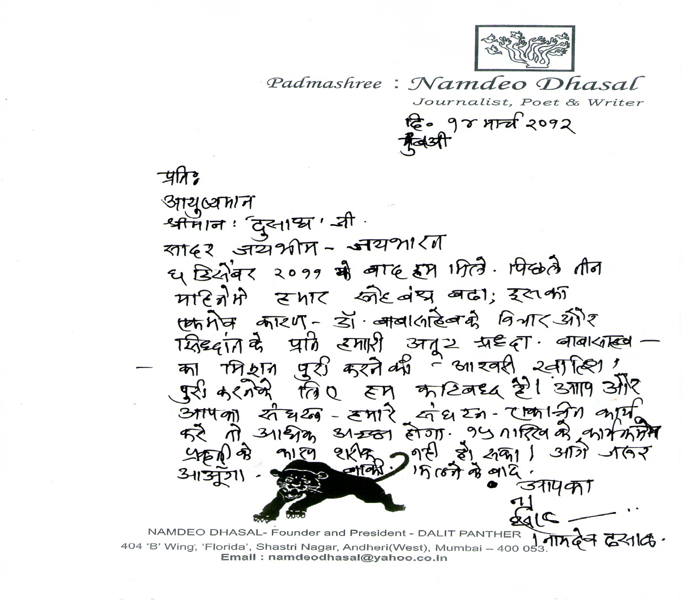 Padmashree : Namdeo Dhasal
Journalist, Poet & Writer
दि. १४ मार्च २०१२
मुंबई
प्रति:
आयुष्यमान
श्रीमान: 'दुसाध' जी.
सादर जयभीम - जयभारत
६ डिसेंबर २०११ के बाद हम मिले. पिछले तीन
महिनेमे हमार स्नेहबंध बढा; इसका
एकमेव कारण - डॉ. बाबासाहेब के विचार और
सिद्धांत के प्रति हमारी अतूट श्रध्दा. बाबासाहब -
- का मिशन पुरी करनेकी - आखरी ख्वाहिश!
पुरी करनेके लिए हम कटिबध्द है। आप और
आपका संघटन - हमारे संघटन - एकत्रित कार्य
करे तो अधिक अच्छा होगा. १५ तारिख के कार्यक्रममे
प्रकृती के कारण शरीक नही हो सका। आगे जरूर
आऊँगा. बाकी मिलने के बाद.
आपका
नामदेव ढसाळ.
NAMDEO DHASAL- Founder and President - DALIT PANTHER
404 'B' Wing, 'Florida', Shastri Nagar, Andheri(West), Mumbai – 400 053.
Email : namdeodhasal@yahoo.co.in